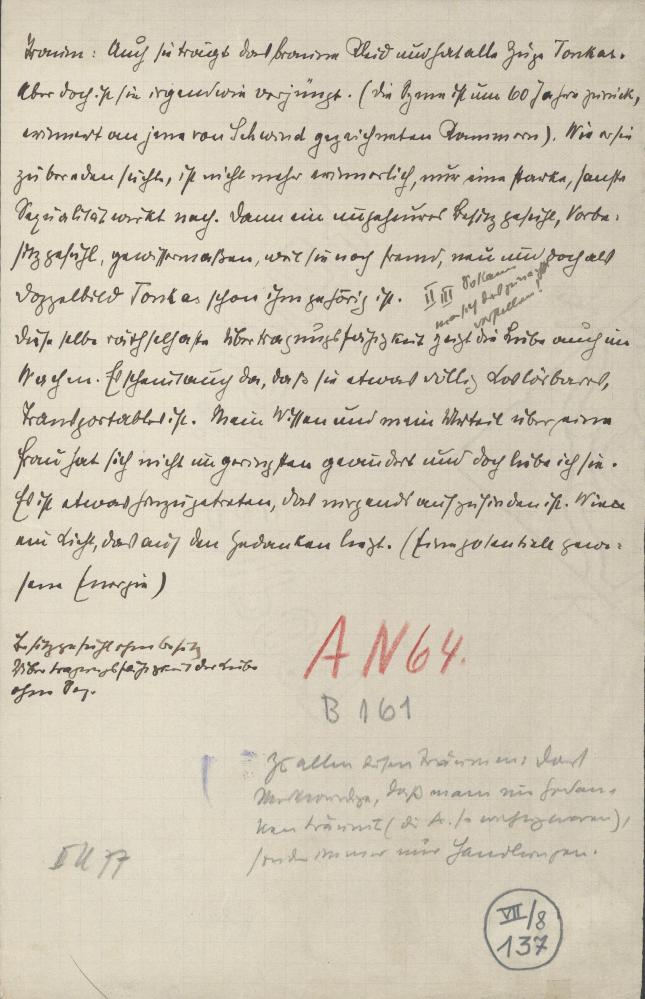 Traum: Auch sie trägt das braune Kleid und hat alle Züge Tonkas.
Aber doch ist sie irgendwie verjüngt. (die Szene ist um 60 Jahre zurück,
erinnert an jene von Schwind gezeichneten Kammern). Wie er sie
zu bereden suchte, ist nicht mehr erinnerlich, nur eine starke, sanfte
Sexualität wirkt nach. Dann ein ungeheures Besitzgefühl, Vorbe-
sitzgefühl, gewissermaßen, weil sie noch fremd, neu und doch als
Doppelbild Tonkas schon ihm gehörig ist.
II III So kann
man sich das
vorstellen!
Diese selbe räthselhafte Übertragungsfähigkeit zeigt die Liebe auch im
Wachen. Es scheint auch da, daß sie etwas völlig Loslösbares,
Transportables ist. Mein Wissen und mein Urteil über eine
Frau hat sich nicht im geringsten geändert und doch liebe ich sie.
Es ist etwas hinzugetreten, das nirgends aufzufinden ist. Wie
ein Licht, das auf den Gedanken liegt. (Eine potentielle gewe-
sene Energie)
Besitzgefühl ohne Besitz
Übertragungsfähigkeit der Liebe
ohne
A N 64.
B 161
Zu allen diesen Träumen: Das
Merkwürdige, daß man nie Gedan-
ken träumt (die A. so),
sondern immer nur Handlungen.
II U 77
VII/8
137